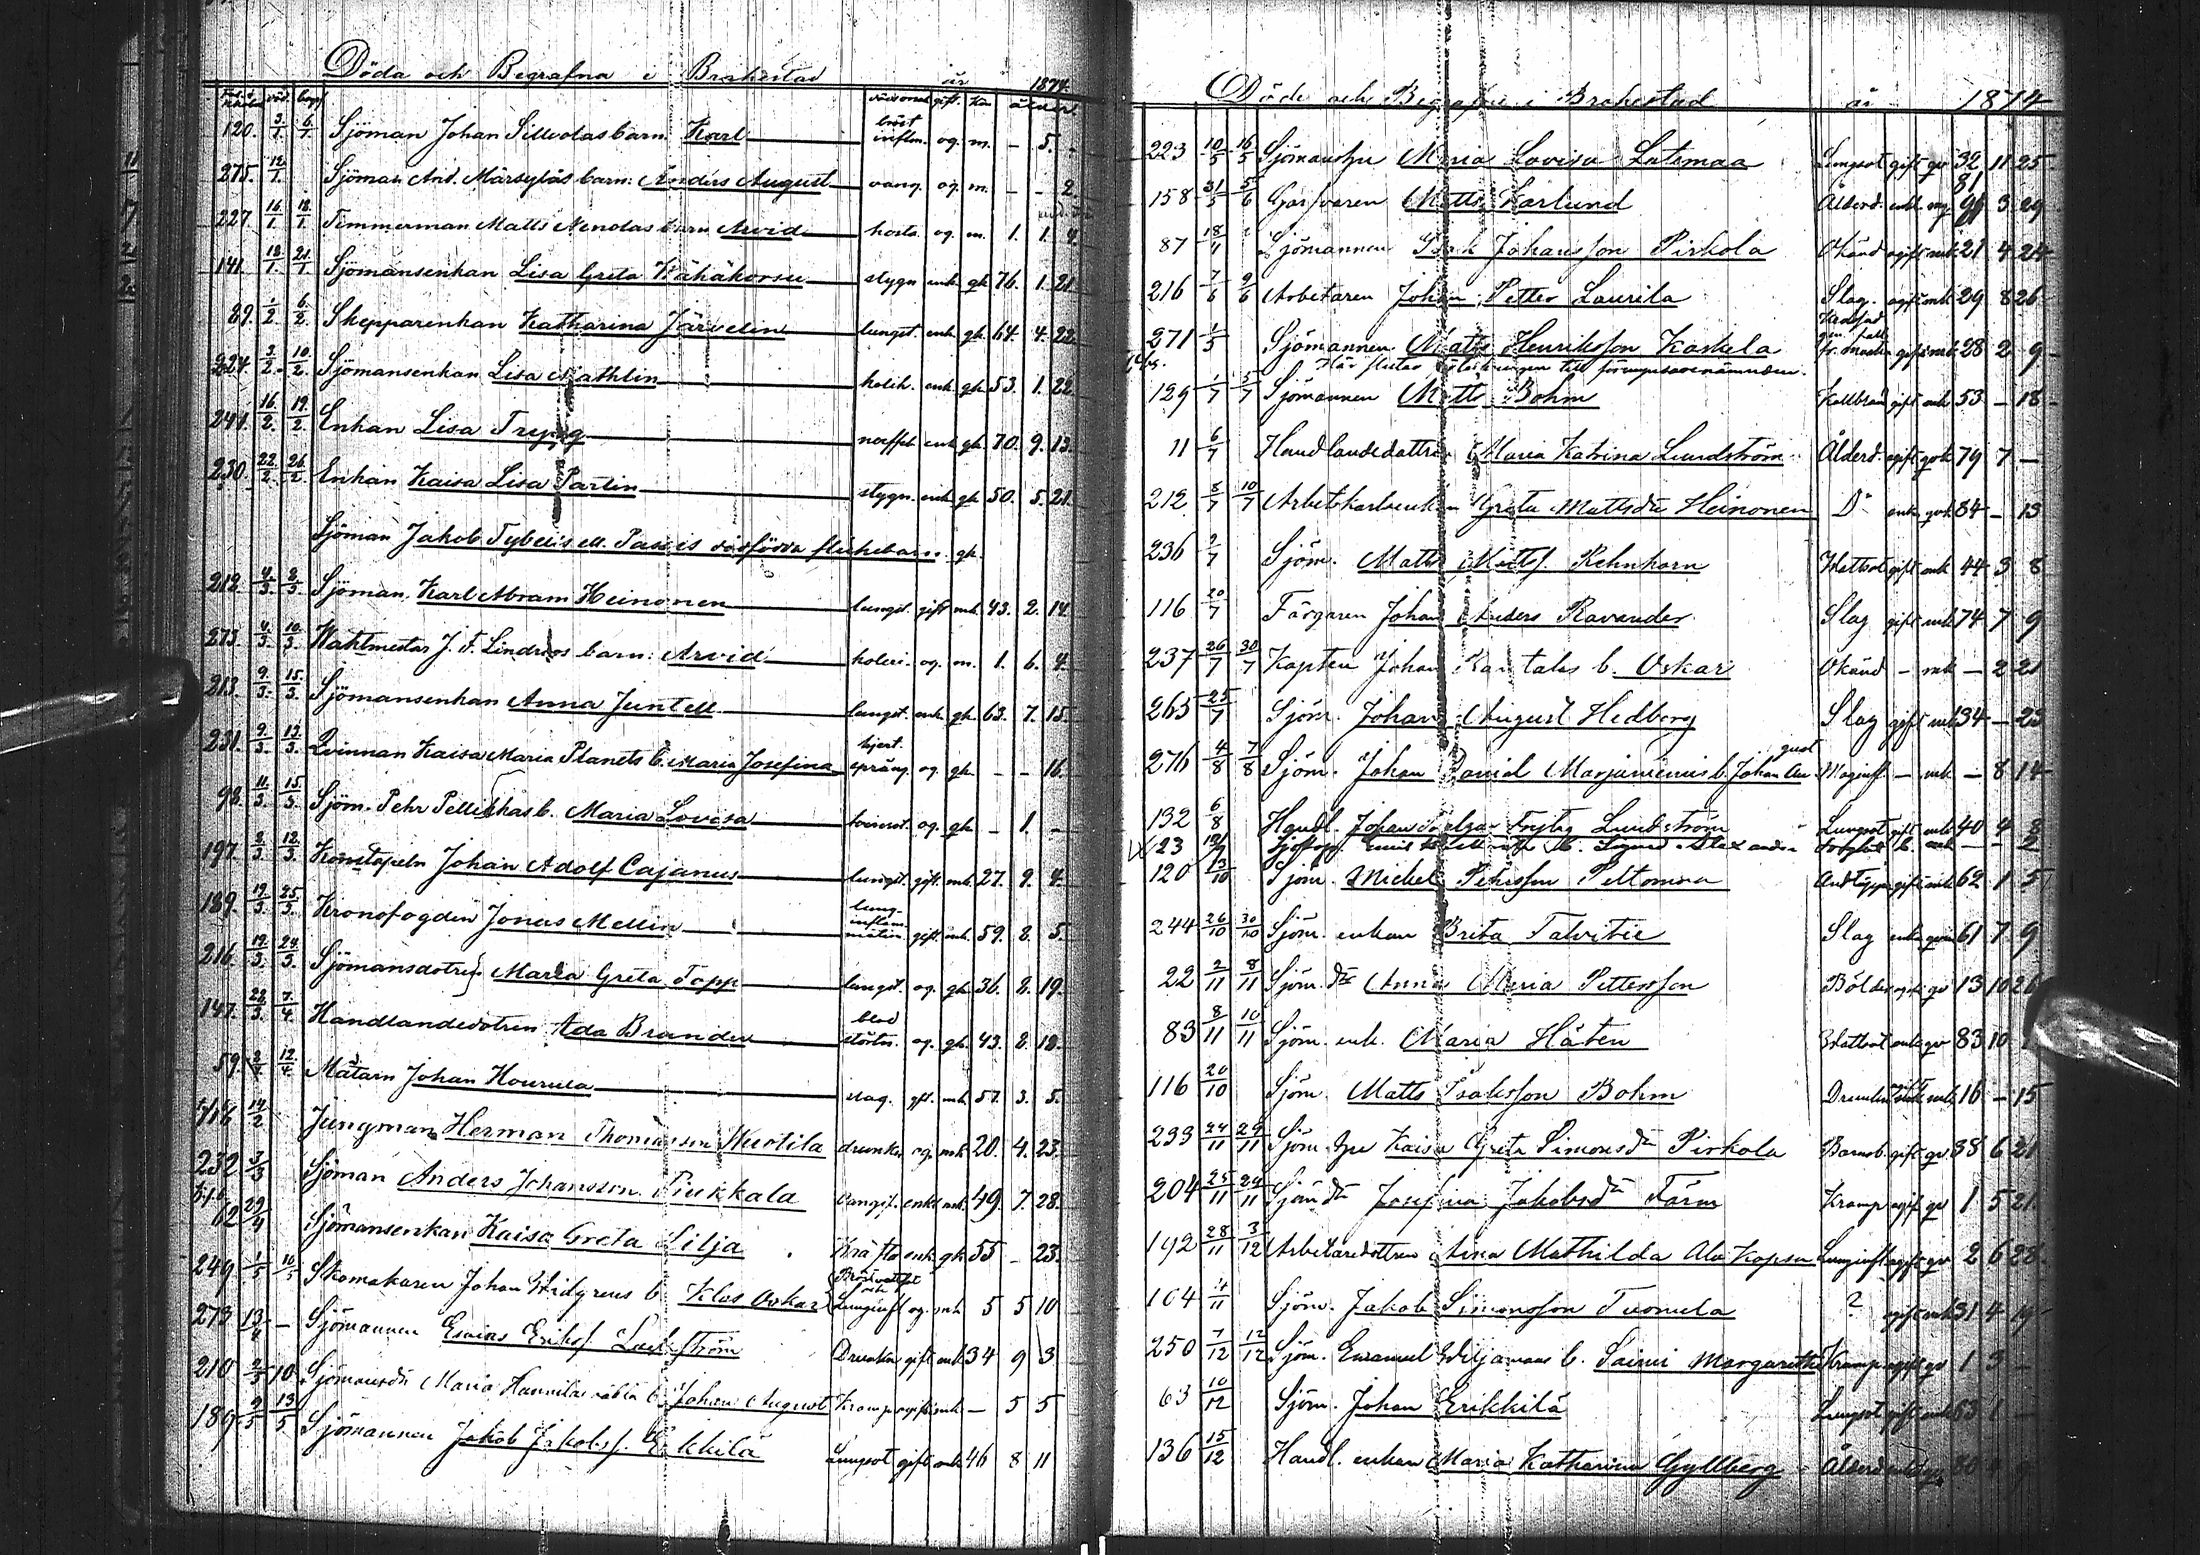 Döda och Begrafna i Brahestad år 1874.
död begr. gift. kön ålder
120. 3/1 6/1 Sjöman Johan Sillvolas barn. Karl bröst inflm. og. m. – 5. –
275. 12/1 Sjöman And. Märsyläs barn: Anders August vang. og. m. – – 2
227. 16/1 18/1 Timmerman Matts Nenolas barn Arvid hosta. og. m. 1. 1. 4.
141 18/1 21/1 Sjömansenkan Lisa Greta Kähäkorsu stygn enk. gk. 76. 1. 21.
89. 1/2 6/2 Skepparenkan Katharina Järvelin lungst. enk. gk. 64. 4. 22
224. 3/2 10/2 Sjömansenkan Lisa Mathlin kolik. enk. gk. 53. 1. 22
241. 16/2 19/2 Enkan Lisa Trygg enk. gk. 70. 9. 13.
230. 22/2 26/2 Enkan Kaisa Lisa Partin stygn. enk. gk. 50. 5. 21.
Sjöman Jakob dödfödda flickebarn. gk.
212. 4/3 8/3 Sjöman Karl Abram Heinonen lungst. gift mk. 43. 2. 14
273. 4/3 10/3 Waktmestar J. F. Lindroos barn: Arvid koleri. og. m. 1. 6. 4.
213. 9/3 15/3 Sjömansenkan Anna Juntell lungst. enk. gk. 63. 7. 15.
231. 9/3 13/3 Qvinnan Kaisa Maria Planets b. Maria Josefina hjert. språng. og. gk. – – 16.
98. 11/3 15/3 Sjöm. Pehr Pellikkas b. Maria Lovisa og. gk. – 1. –
197. 8/3 12/3 Konstapeln Johan Adolf Cajanus lungst. gift. mk. 27. 9. 4.
189. 19/3 25/3 Kronofogden Jonas Mellin lung- inflam- mation gift. mk. 59. 8. 5.
216. 19/3 24/3 Sjömansdotren Maria Greta Topp lungst. og. gk. 36. 8. 19.
147. 28/3 7/4 Handlandedotren Ada Brander blod störtn. og. gk. 43. 8. 18.
59. 12/4 Mätarn Johan Hourula slag. gft. mk. 57. 3. 5.
14/2 Jungman Herman Thomasson Wuotila drunkn. og. mk. 20. 4. 23.
232 3/3 Sjöman Anders Johansson Piukkala Lungst. enkl. mk. 49. 7. 28.
62 29/4 Sjömansenkan Kaisa Greta Lilja Kräfta enk. gk. 55 – 23.
249 1/5 10/5 Skomakaren Johan Widgrens b. Klas Oskar Bröstvattst och Lunginfl og. mk 5 5 10
273 13/4 – Sjömannen Esaias Eriksf. Drunkn gift mk 34 9 3
210 2/5 10 Sjömansdr Maria Hannila b. Johan August Kramp ogift mk – 5 5
189 9/5 13/5 Sjömannen Jakob Jakobsf. Erkkilä Lungsot gift mk 46 8 11
Döde och Begrafne i Brahestad år 1874
223 10/5 16/5 Sjömanshu Maria Lovisa Latomaa Lungsot gift qv 32 11 25
158 31/5 5/6 Garfvaren Matts Karlund Ålderd. enk. 81 3 29
87 18/1 Sjömannen Isak Johansson Pirkola Okänd ogift mk 21 4 24
216 7/6 9/6 Arbetaren Johan Petter Laurila Slag. ogift mk 29 8 26
271 1/5 Sjömannen Matts Henriksson Kaskela gift mk 28 2 9
Här slutar till
129 1/7 5/7 Sjömannen Matts Bohm Kallbrand gift mk 53 – 18
11 6/7 Handlandedottren Maria Katrina Lundström Ålderd. ogift qvk 79 7 –
212 8/7 10/7 Arbetskarlsenkan Greta Mattsdr Heinonen Do enk qvk 84 – 13
236 2/7 Sjöm. Matts Mattsf. Rehnhorn Wattsot gift mk 44 3 8
116 20/7 Färgaren Johan Anders Ravander Slag gift mk 74 7 9
237 26/7 30/7 Kapten Johan Rantalas b. Oskar Okänd – mk – 2 21
263 25/7 Sjöm. Johan August Hedberg Slag gift mk 34 – 23
276 4/8 7/8 Sjöm. Johan Daniel Marjaniemis b. Johan August Maginfl. – mk – 8 14
132 6/8 Handl. Johan Lundström Lungsot gift mk 40 4 8
23 Emil b. mk – – 2
120 13/10 Sjöm. Mickel Pehrsson Peltomaa gift mk 62 1 5
244 26/10 30/10 Sjöm. enkan Brita Talvitie Slag enk qv 61 7 9
22 2/11 8/11 Sjöm. dr Anna Maria Pettersson Bölder ogift qv 13 10 26
83 8/11 10/11 Sjöm. enk. Maria Håten Wattsot enk qv 83 10
116 20/10 Sjöm. Matts Isaksson Bohm mk 16 – 15
233 24/11 29/11 Sjöm hu Kaisa Greta Simonsdr Pirkola Barnsb. gift qv 38 6 21
204 25/11 29/11 Sjöm dr Josefina Jakobsdr Färm Kramp ogift qv 1 5 21.
192 28/11 3/12 Arbetaredottren Anna Mathilda Ala Kopsa Lunginfl ogift qv 2 6 28
104 4/11 Sjöm. Jakob Simonsson Tuomela ? gift mk 31 4 19
250 7/12 12/12 Sjöm. Emanuel Viljamaas b. Saimi Margaretha Kramp ogift qv 1 3 –
63 10/12 Sjöm. Johan Erikkilä Lungsot gift mk 63 1 –
136 15/12 Handl. enkan Maria Katharina Gyllberg Ålderd